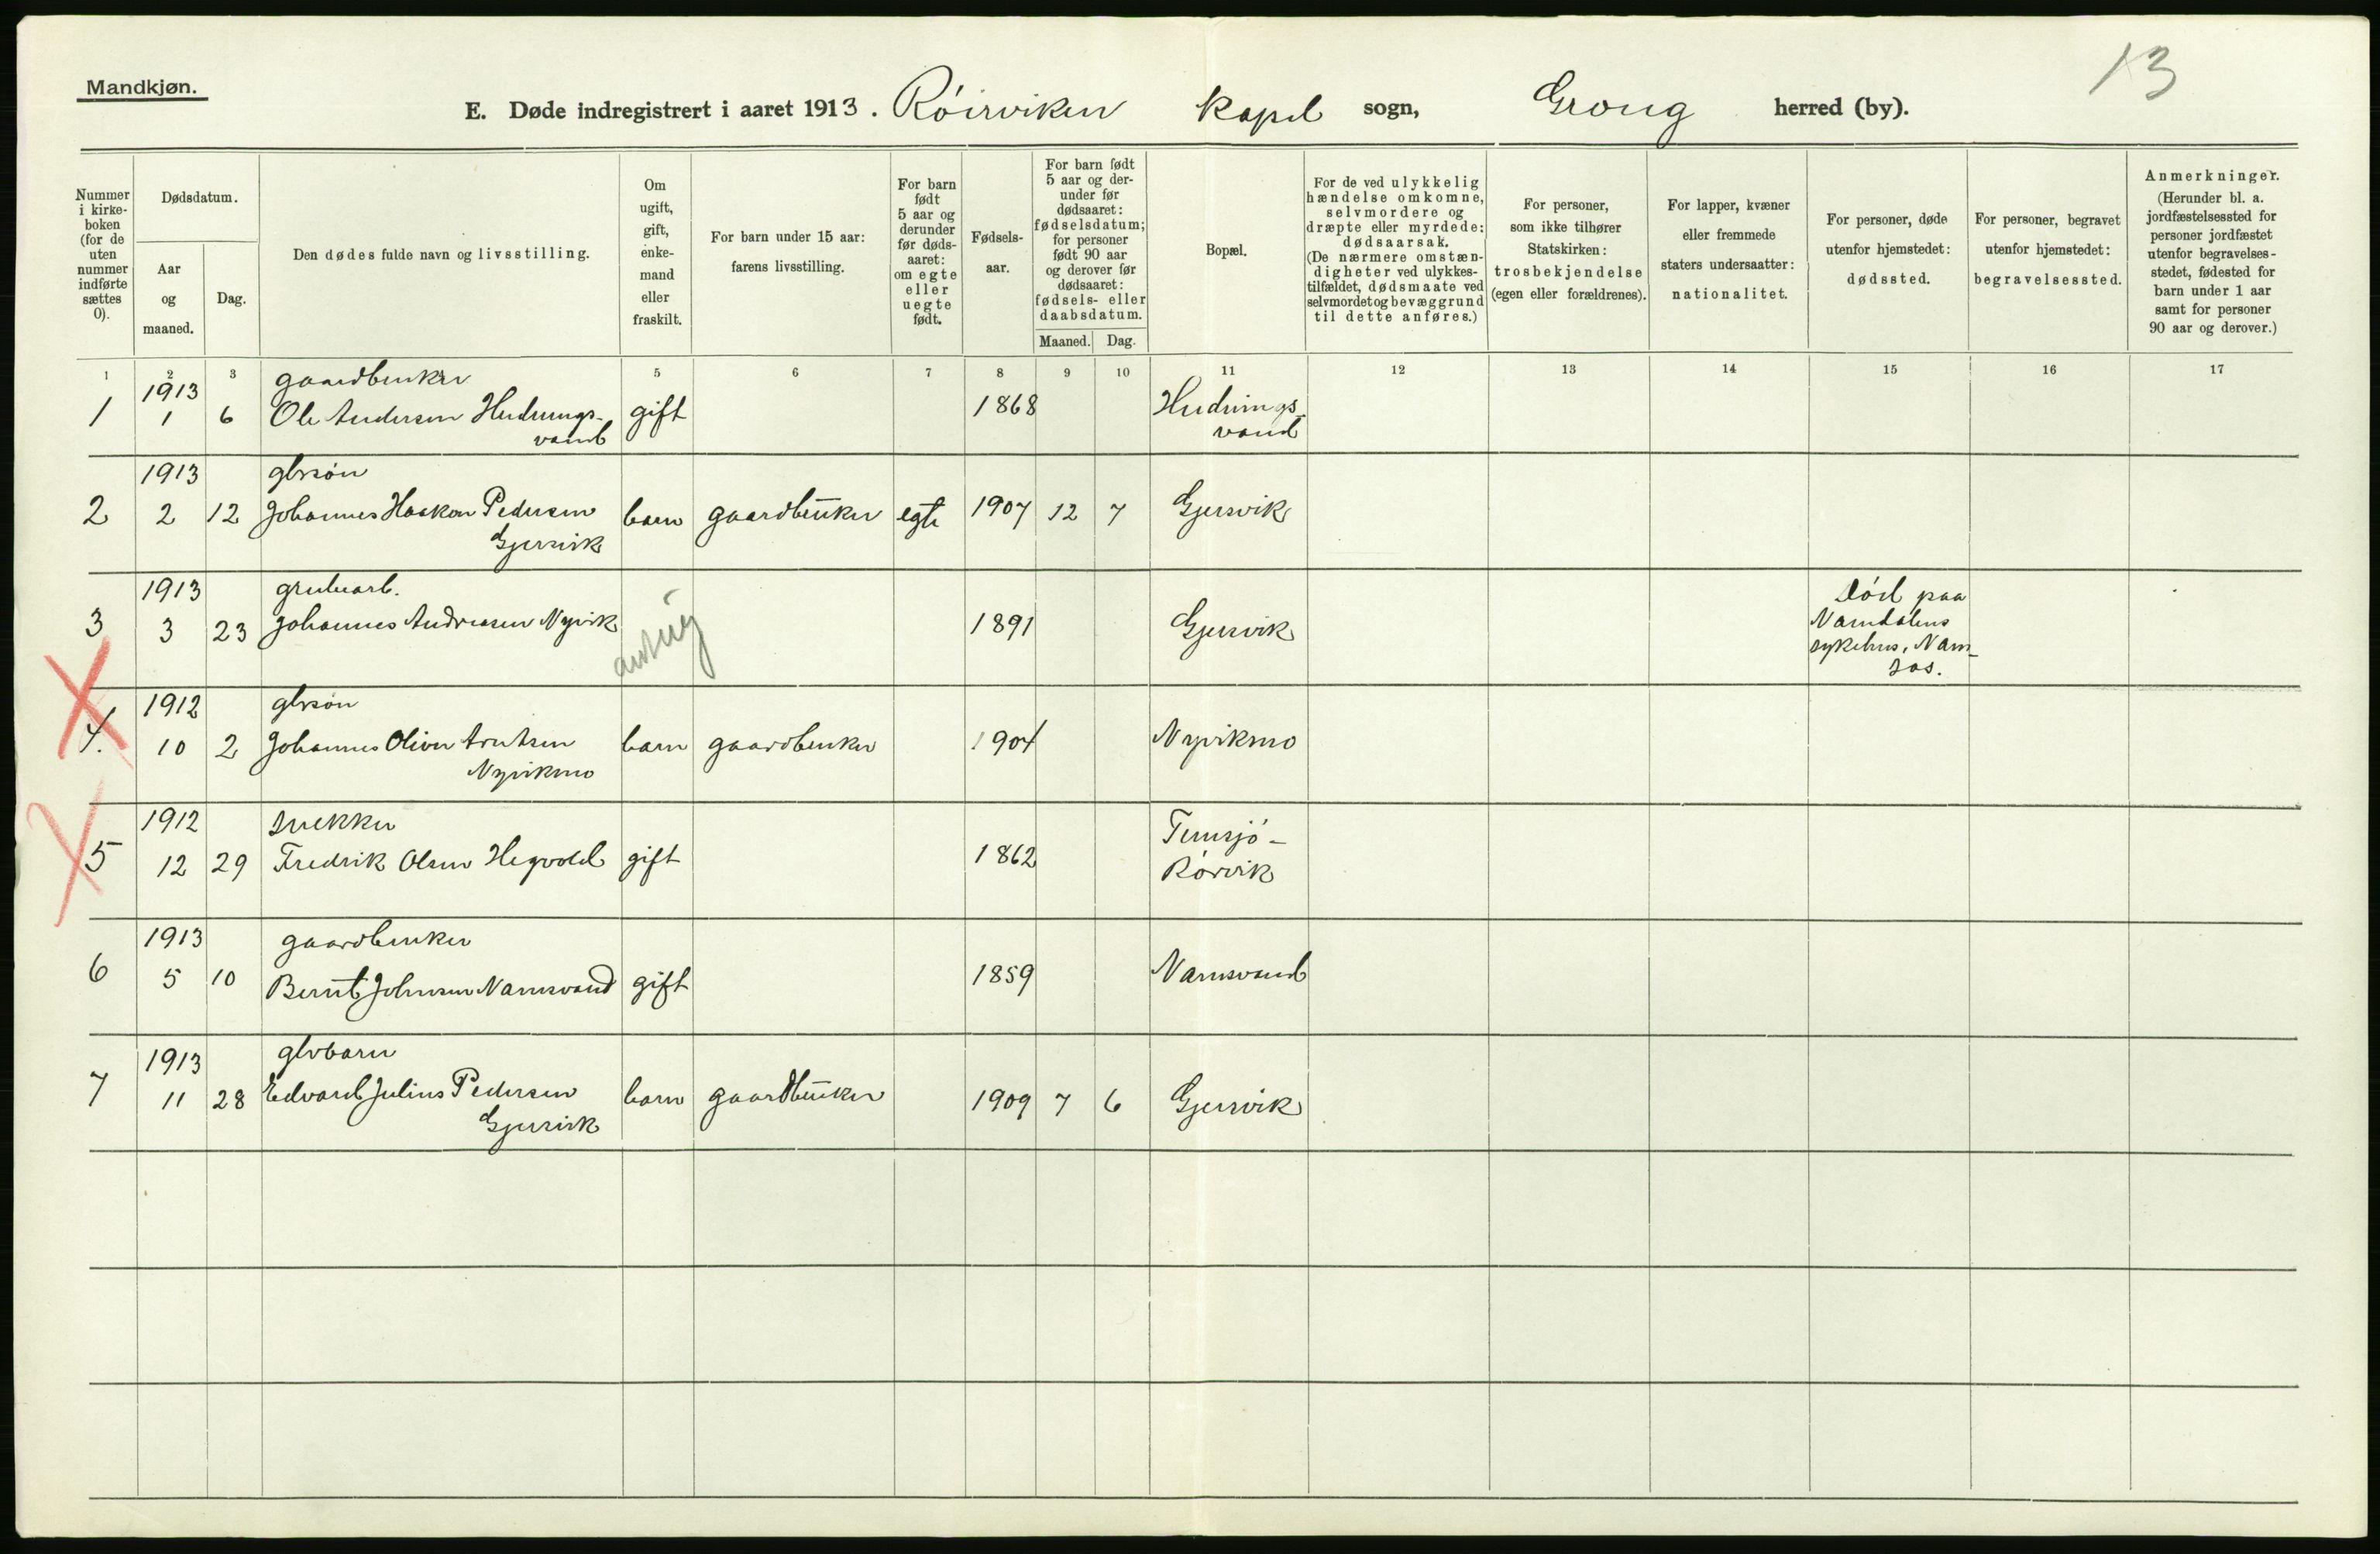 13
Mandkjøn.
E. Døde indregistrert i aaret 1913. Röirviken kapel sogn, Grong herred (by).
Nummer i kirke-boken (for de uten nummer indførte sættes 0).
Dødsdatum.
Aar og maaned.
Dag.
Den dødes fulde navn og livsstilling.
Om ugift, gift, enke-mand eller fraskilt.
For barn under 15 aar: farens livsstilling.
For barn født 5 aar og derunder før døds-aaret: om egte eller uegte født.
Fødsels-aar.
For barn født 5 aar og der-under før dødsaaret: fødselsdatum; for personer født 90 aar og derover før dødsaaret: fødsels- eller daabsdatum.
Maaned. Dag.
Bopæl.
For de ved ulykkelig hændelse omkomne, selvmordere og dræpte eller myrdede: dødsaarsak. (De nærmere omstæn-digheter ved ulykkes-tilfældet, dødsmaate ved selvmordet og bevæggrund til dette anføres.)
For personer, som ikke tilhører Statskirken: trosbekjendelse (egen eller forældrenes).
For lapper, kvæner eller fremmede staters undersaatter: nationalitet.
For personer, døde utenfor hjemstedet: dødssted.
For personer, begravet utenfor hjemstedet: begravelsessted.
Anmerkninger. (Herunder bl. a. jordfæstelsessted for personer jordfæstet utenfor begravelses-stedet, fødested for barn under 1 aar samt for personer 90 aar og derover.)
1 2 3 5 6 7 8 9 10 11 12 13 14 15 16 17
1913 gaardbruker
1 1 6 Ole Andersen Hudnings- gift 1868 Hudnings-
vand vand
1913 gbrsön
2 2 12 Johannes Haakon Pedersen barn gaardbruker egte 1907 12 7 Gjersvik
Gjersvik
1913 grubearb. Död paa
3 3 23 Johannes Andreasen Nyvik 1891 Gjersvik Namdalens
sykehus, Nam-
sos.
1912 gbrsön
4. 10 2 Johannes Oliver Arntsen barn gaardbruker 1904 Nyvikmo
Nyvikmo
1912 snekker Tunsjö-
5 12 29 Fredrik Olsen Hegvold gift 1862 Rörvik
1913 gaardbruker
6 5 10 Bernt Johnsen Namsvand gift 1859 Namsvand
1913 gbrbarn
7 11 28 Edvard Julius Pedersen barn gaardbruker 1909 7 6 Gjersvik
Gjersvik